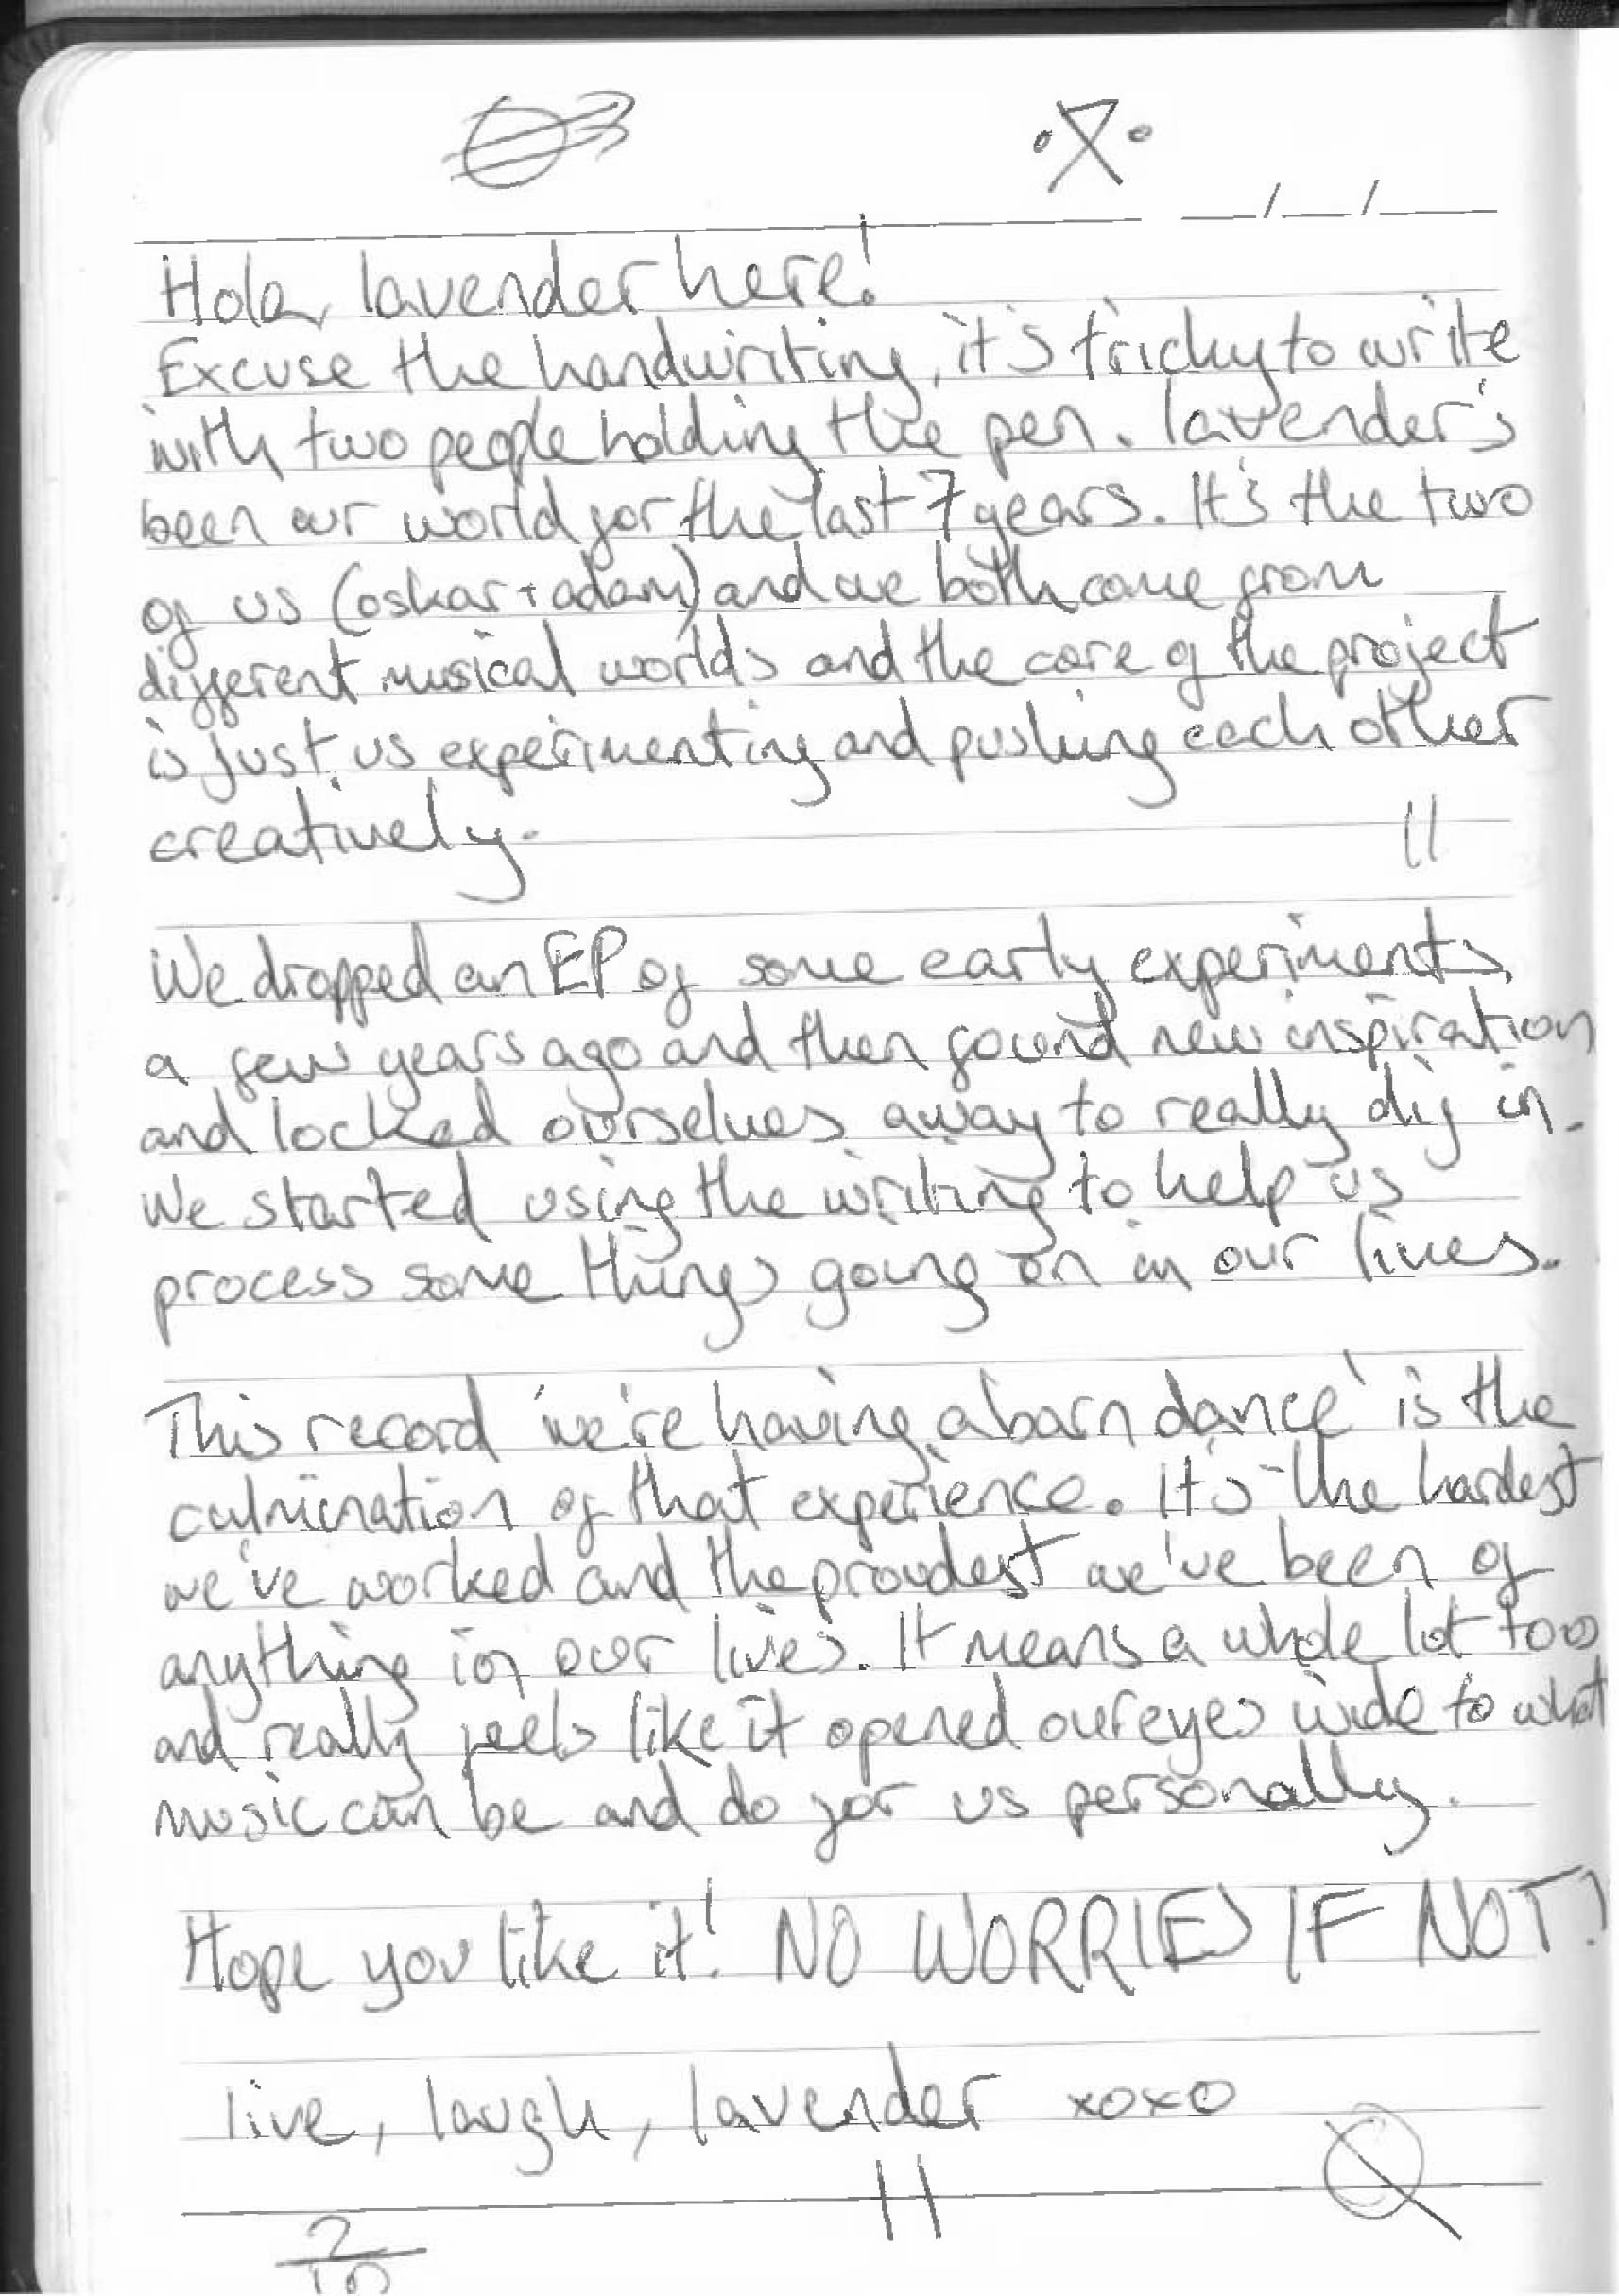 __/__/__
Hola, lavender here!
Excuse the handwriting, it's tricky to write
with two people holding the pen. lavender's
been our world for the last 7 years. It's the two
of us (oskar + adam) and we both come from
different musical worlds and the core of the project
is just us experimenting and pushing each other
creatively.
We dropped an EP of some early experiments
a few years ago and then found new inspiration
and locked ourselves away to really dig in.
We started using the writing to help us
process some things going on in our lives.
This record 'we're having a barn dance' is the
culmination of that experience. It's the hardest
we've worked and the proudest we've been of
anything in our lives. It means a whole lot too
and really feels like it opened our eyes wide to what
music can be and do for us personally.
Hope you like it! NO WORRIES IF NOT!
live, laugh, lavender xoxo
2
10